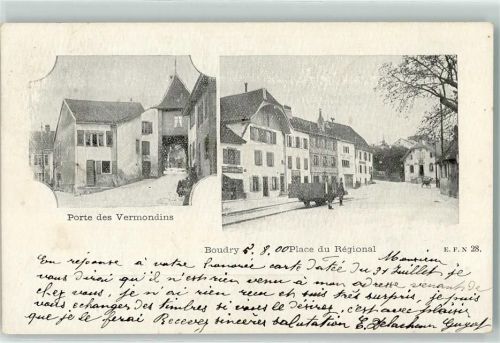 Porte des Vermondins
Boudry 5. 8. 00 Place du Régional
E. F. N 28.
Monsieur
En réponse à votre honorée carte datée du 31 Juillet, je
vous dirai qu'il n'est rien venu à mon adresse venant de
chez vous, je n'ai rien recu et suis très surpris, je puis
vous echanger des timbres si vous le désirez, c'est avec plaisir
que je le ferai Recevez sincères salutation E.